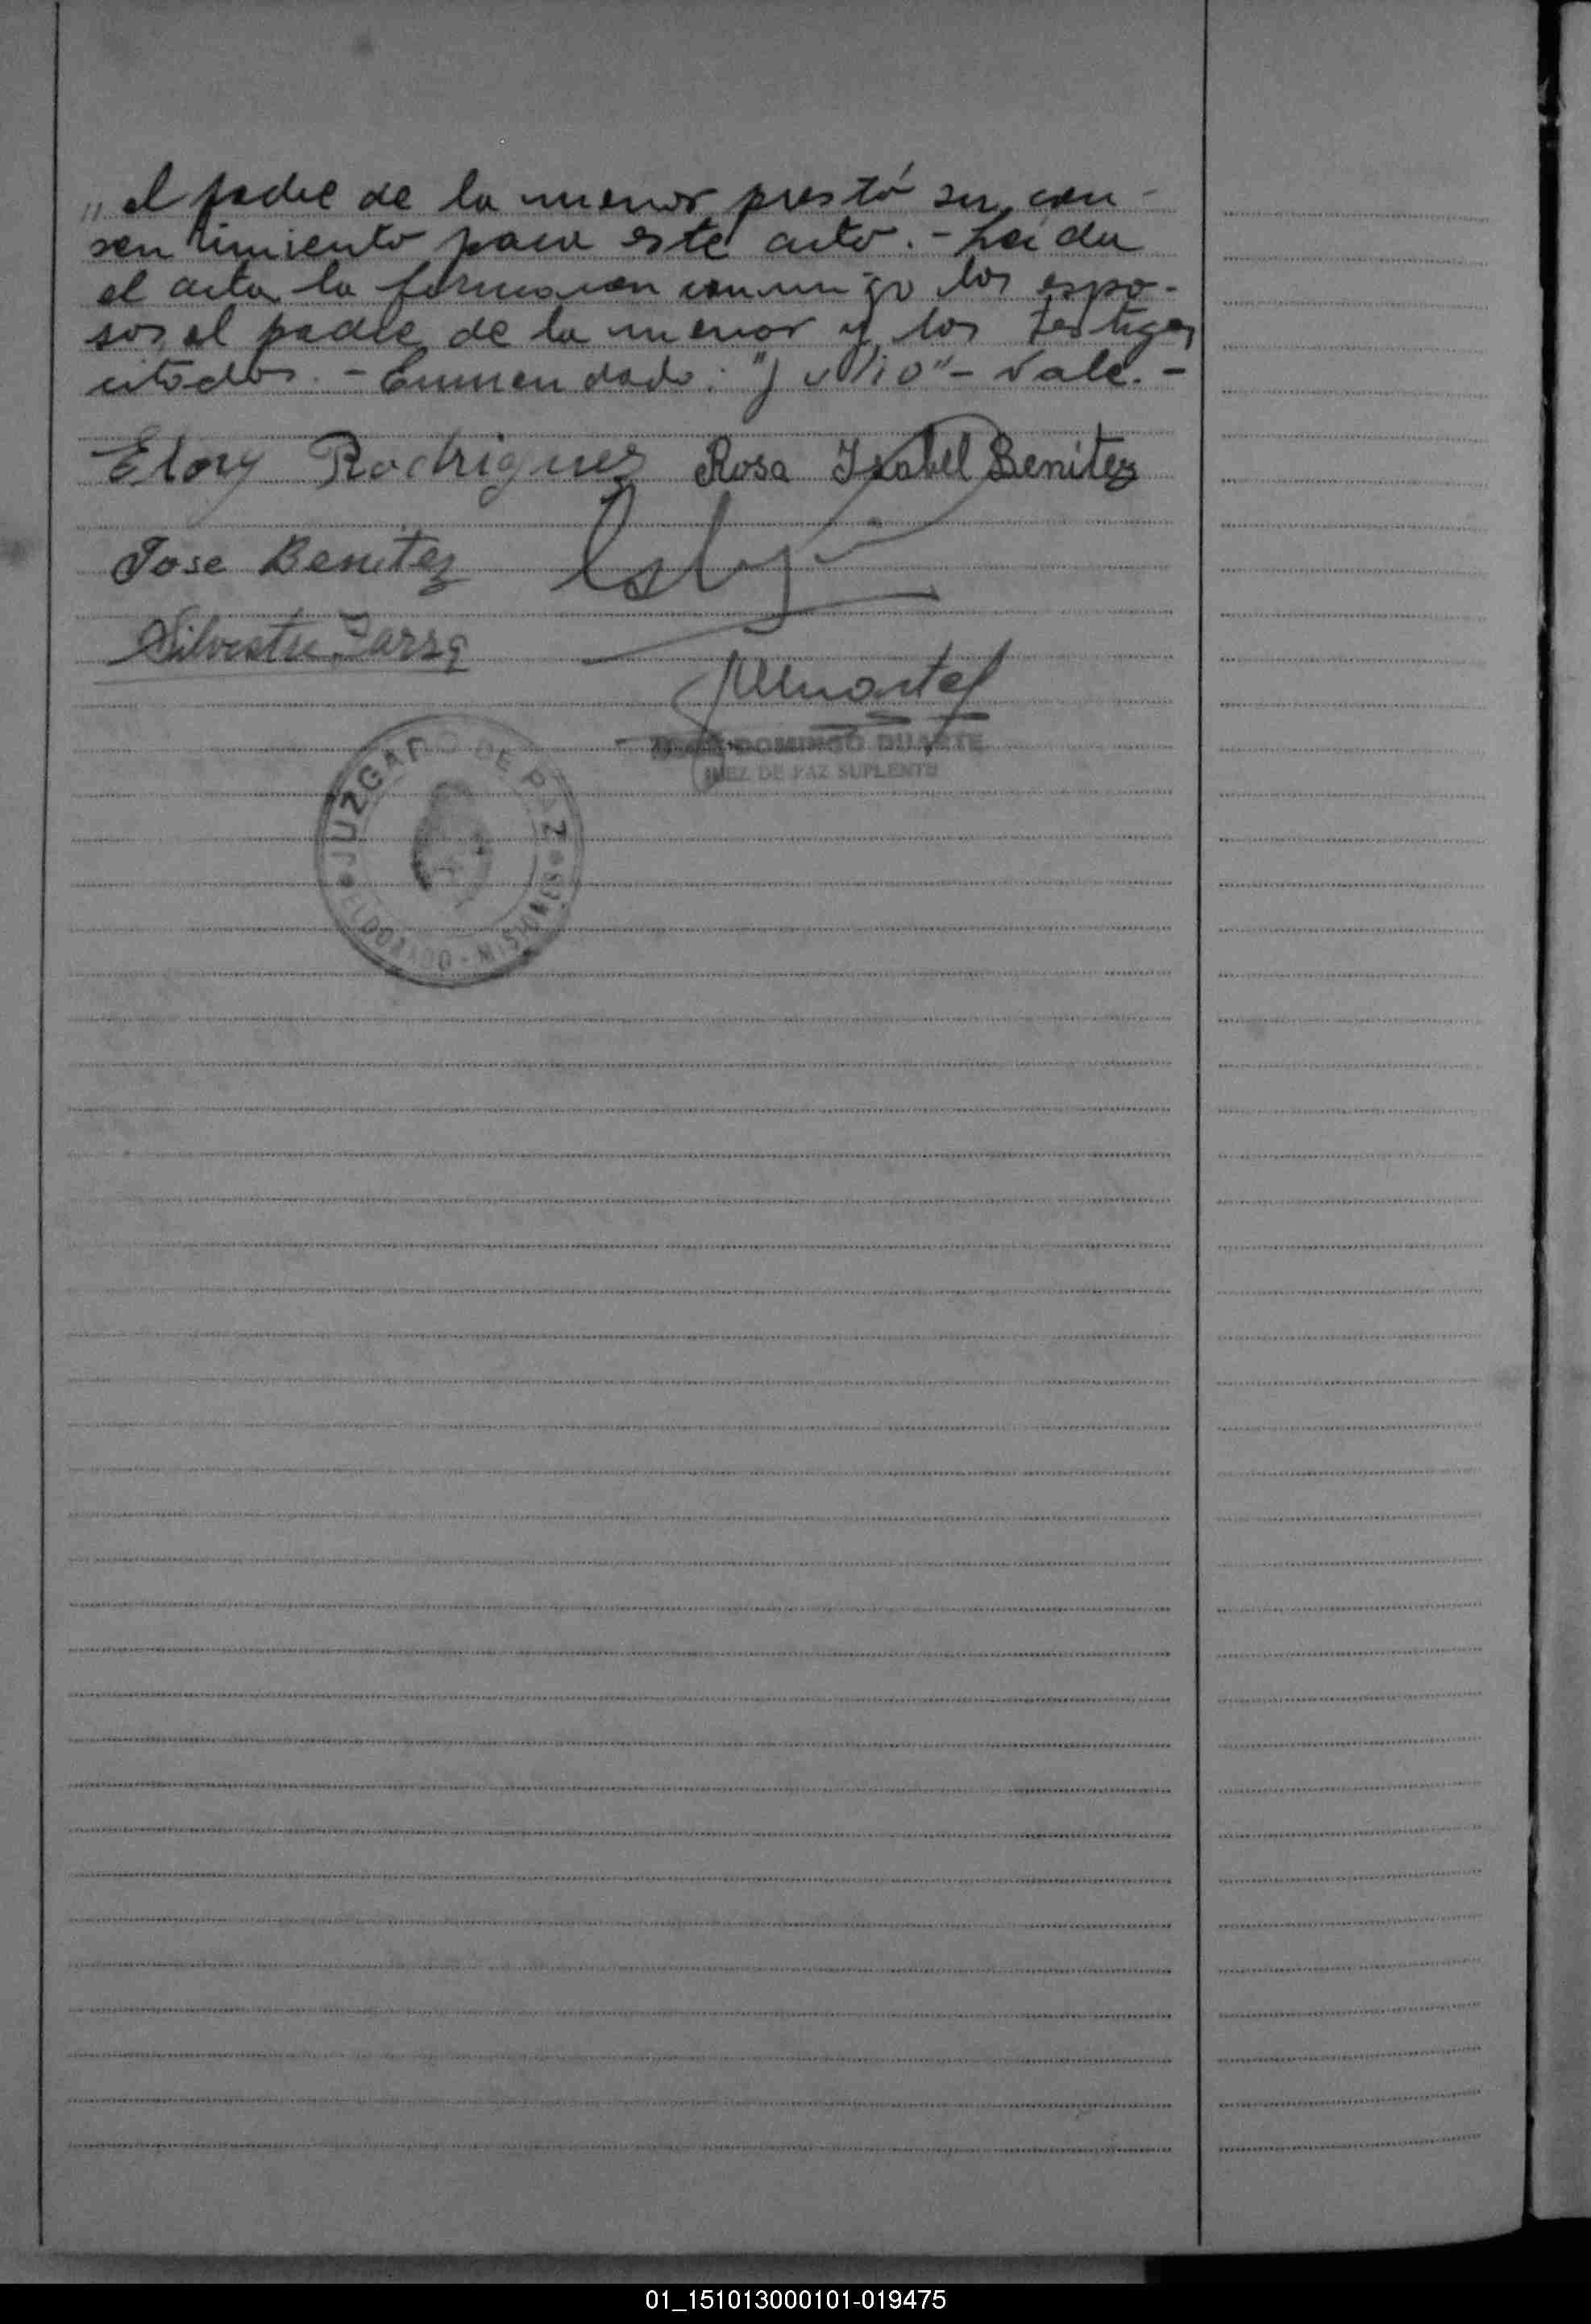 „ el padre de la menor prestó su con-
sentimiento para este acto. - Leida
el acta la firmaron conmigo los espo-
sos, el padre de la menor y los testigos
citados. - Enmendado: "Julio" - Vale. -
Eloy Rodriguez Rosa Isabel Benitez
Jose Benitez
Silvestre
DOMINGO DUARTE
JUEZ DE PAZ SUPLENTE
JUZGADO DE PAZ
ELDORADO - MISIONES
01_151013000101-019475